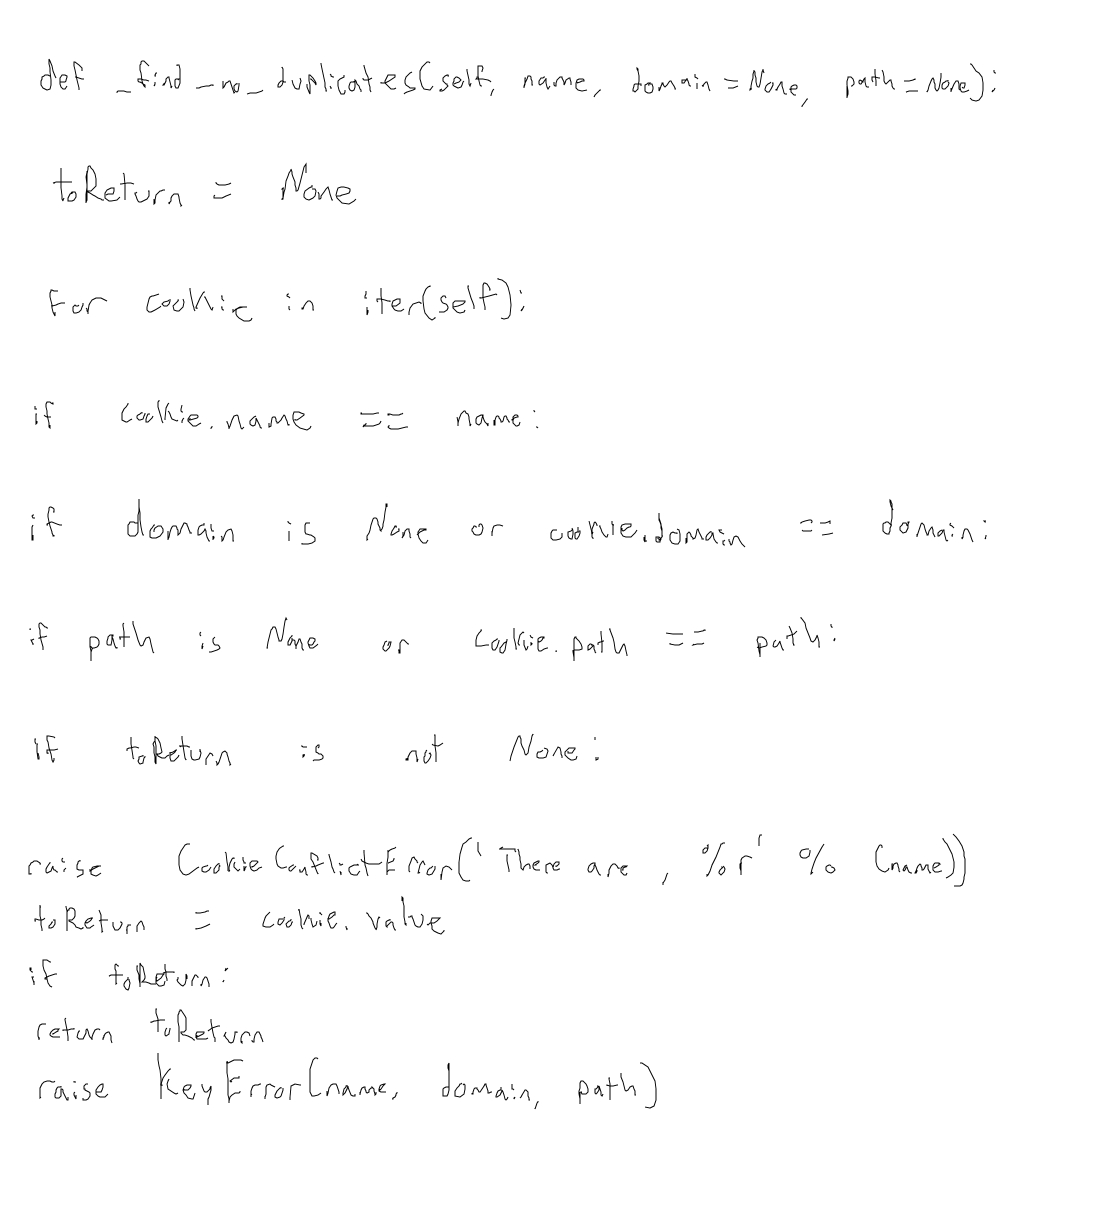 def _find_no_duplicates(self, name, domain=None, path=None):
toReturn = None
For cookie in iter(self):
if cookie.name == name:
if domain is None or cookie.domain == domain:
if path is None or cookie.path == path:
if toReturn is not None:
raise CookieConflictError('There are , %r' % (name))
toReturn = cookie.value
if toReturn:
return toReturn
raise KeyError(name, domain, path)